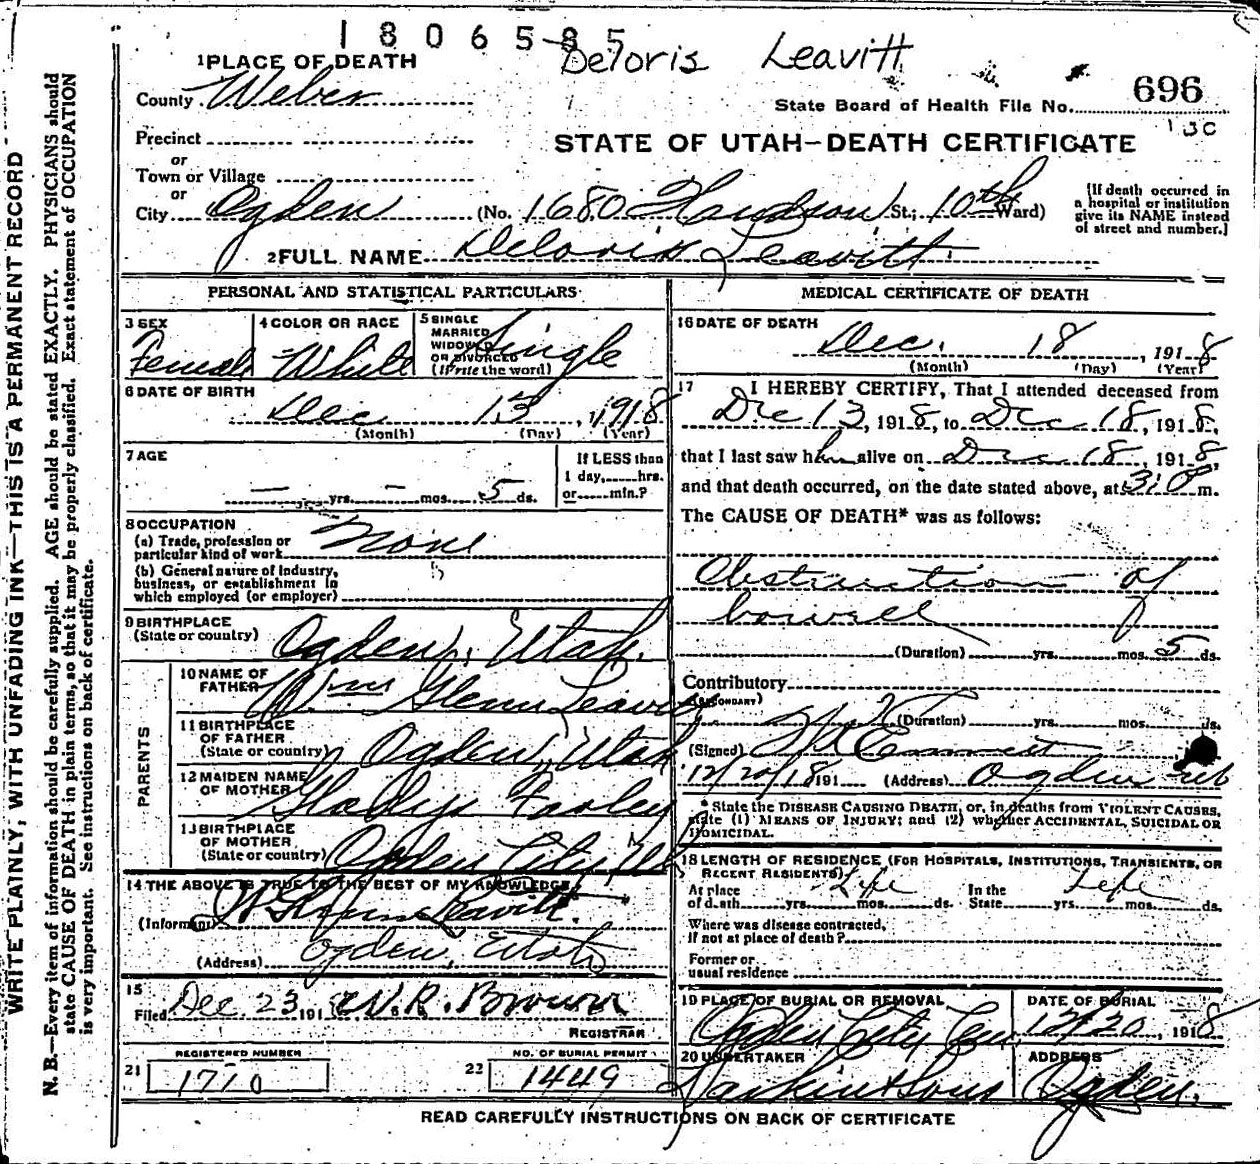 1806585
Deloris Leavitt
1 PLACE OF DEATH
County Weber
State Board of Health File No. 696
13C
Precinct
or
Town or Village
or
STATE OF UTAH—DEATH CERTIFICATE
City Ogden (No. 1680 Hudson St; 10th Ward)
[If death occurred in
a hospital or institution
give its NAME instead
of street and number.]
2 FULL NAME Deloris Leavitt
PERSONAL AND STATISTICAL PARTICULARS
3 SEX
Female
4 COLOR OR RACE
White
5 SINGLE
MARRIED
WIDOWED
OR DIVORCED
(Write the word)
Single
6 DATE OF BIRTH
Dec 13, 1918
(Month) (Day) (Year)
7 AGE
— yrs. — mos. 5 ds.
If LESS than
1 day, hrs.
or min.?
8 OCCUPATION
(a) Trade, profession or
particular kind of work None
(b) General nature of Industry,
business, or establishment in
which employed (or employer)
9 BIRTHPLACE
(State or country) Ogden, Utah.
PARENTS
10 NAME OF
FATHER Wm Glenn Leavitt
11 BIRTHPLACE
OF FATHER
(State or country) Ogden, Utah
12 MAIDEN NAME
OF MOTHER Gladys Farley
13 BIRTHPLACE
OF MOTHER
(State or country) Ogden City
14 THE ABOVE IS TRUE TO THE BEST OF MY KNOWLEDGE
(Informant) W Glenn Leavitt.
(Address) Ogden, Utah
15
Filed Dec 23 191 8 W. R. Brown
REGISTRAR
REGISTERED NUMBER
21 1710
NO. OF BURIAL PERMIT
22 1449
MEDICAL CERTIFICATE OF DEATH
16 DATE OF DEATH
Dec. 18, 1918
(Month) (Day) (Year)
17 I HEREBY CERTIFY, That I attended deceased from
Dec 13, 1918, to Dec 18, 1918,
that I last saw her alive on Dec 18, 1918,
and that death occurred, on the date stated above, at m.
The CAUSE OF DEATH* was as follows:
Obstruction of
bowell
(Duration) yrs. mos. 5 ds.
Contributory
(SECONDARY)
(Duration) yrs. mos. ds.
(Signed)
12/20/18 191 (Address) Ogden
*State the DISEASE CAUSING DEATH, or, in deaths from VIOLENT CAUSES,
state (1) MEANS OF INJURY; and (2) whether ACCIDENTAL, SUICIDAL OR
HOMICIDAL.
18 LENGTH OF RESIDENCE (FOR HOSPITALS, INSTITUTIONS, TRANSIENTS, OR
RECENT RESIDENTS)
At place
of death yrs. Life mos. ds. In the
State Life yrs. mos. ds.
Where was disease contracted,
if not at place of death?
Former or
usual residence
19 PLACE OF BURIAL OR REMOVAL
Ogden City Cem
DATE OF BURIAL
12/20, 1918
20 UNDERTAKER
Larkin & Sons
ADDRESS
Ogden.
READ CAREFULLY INSTRUCTIONS ON BACK OF CERTIFICATE
WRITE PLAINLY, WITH UNFADING INK—THIS IS A PERMANENT RECORD
N. B.—Every item of information should be carefully supplied. AGE should be stated EXACTLY. PHYSICIANS should
state CAUSE OF DEATH in plain terms, so that it may be properly classified. Exact statement of OCCUPATION
is very important. See instructions on back of certificate.